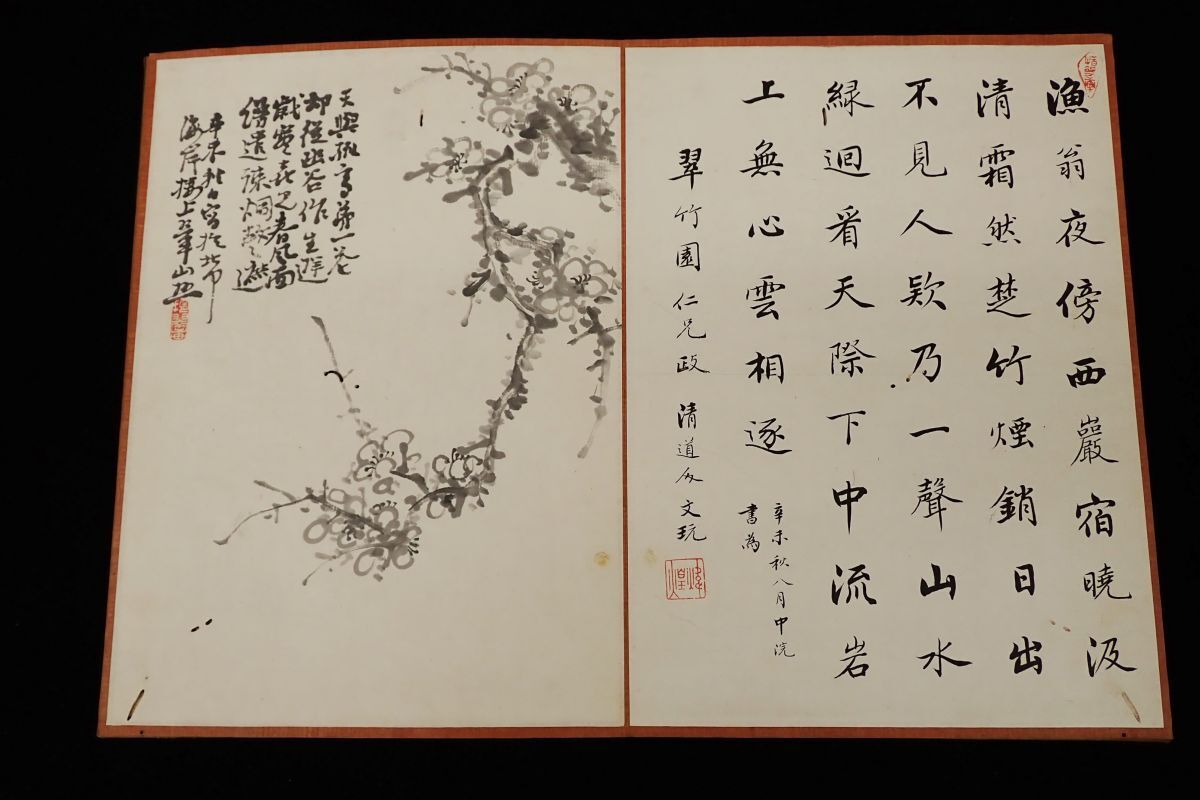 漁翁夜傍西巖宿曉汲
清霜然楚竹煙銷日出
不見人欵乃一聲山水
緑迴看天際下中流岩
上無心雲相逐
辛未秋八月中浣
書為
翠竹園仁兄政 清道人文玩
天與孤高第一花
却從幽谷作生涯
歲寒喜見春風面
辛未秋日寫於北
海岸樓上